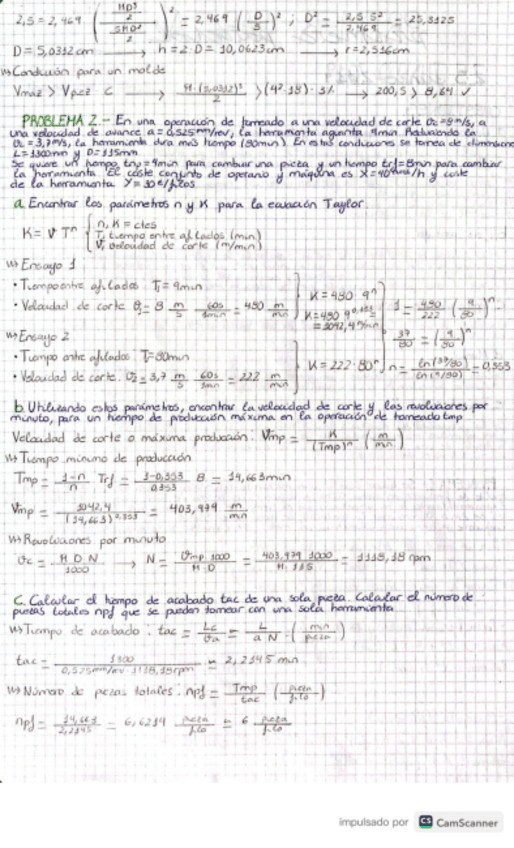 2,5 = 2,469 (ΠD³/2 / ΠHD²/2)² = 2,469 (D/5)² ; D² = 2,5·5²/2,469 = 25,3125
D = 5,0312cm → h = 2·D = 10,0623cm → r = 2,516cm
Condición para un molde
Vmaz > Vpcz · C → Π·(5,0312)³/2 > (4²·18)·3% → 200,5 > 8,64 ✓
PROBLEMA 2.- En una operación de torneado a una velocidad de corte Vc=8m/s, a
una velocidad de avance a=0,525mm/rev, la herramienta aguanta 9min. Reduciendo la
Vc=3,7m/s, la herramienta dura más tiempo (80min). En estas condiciones se tornea de dimensiones
L=1300mm y D=115mm
Se quiere un tiempo tcp=4min para cambiar una pieza y un tiempo trf=8min para cambiar
la herramienta. El coste conjunto de operario y máquina es X=40 /h y coste
de la herramienta Y=30€/filos
a. Encontrar los parámetros n y K para la ecuación Taylor.
K = V Tⁿ { n, K = ctes
T, tiempo entre afilados (min)
V, velocidad de corte (m/min)
Ensayo 1
• Tiempo entre afilados T₁ = 9min
• Velocidad de corte V₁ = 8 m/s 60s/1min = 480 m/min
K = 480·9ⁿ
K = 480·9^0,353 = 1042,4 m/min
1 = 480/222 (9/80)ⁿ
37/80 = (9/80)ⁿ
Ensayo 2
• Tiempo entre afilados T₂ = 80min
• Velocidad de corte V₂ = 3,7 m/s 60s/1min = 222 m/min
K = 222·80ⁿ
n = ln(37/80)/ln(9/80) = 0,353
b. Utilizando estos parámetros, encontrar la velocidad de corte y las revoluciones por
minuto, para un tiempo de producción máxima en la operación de torneado tmp
Velocidad de corte o máxima producción: Vmp = K/(Tmp)ⁿ (m/min)
Tiempo mínimo de producción
Tmp = 1-n/n Trf = 1-0,353/0,353 8 = 14,663min
Vmp = 1042,4/(14,663)^0,353 = 403,979 m/min
Revoluciones por minuto
Vc = Π·D·N/1000 → N = Vmp·1000/Π·D = 403,979·1000/Π·115 = 1118,18 rpm
c. Calcular el tiempo de acabado tac de una sola pieza. Calcular el número de
piezas totales npf que se pueden tornear con una sola herramienta
Tiempo de acabado: tac = Lc/Va = L/a·N (min/pieza)
tac = 1300/0,525mm/rev·1118,18rpm = 2,2145 min
Número de piezas totales: npf = Tmp/tac (pieza/filo)
npf = 14,663/2,2145 = 6,6214 pieza/filo ≈ 6 pieza/filo
impulsado por CS CamScanner